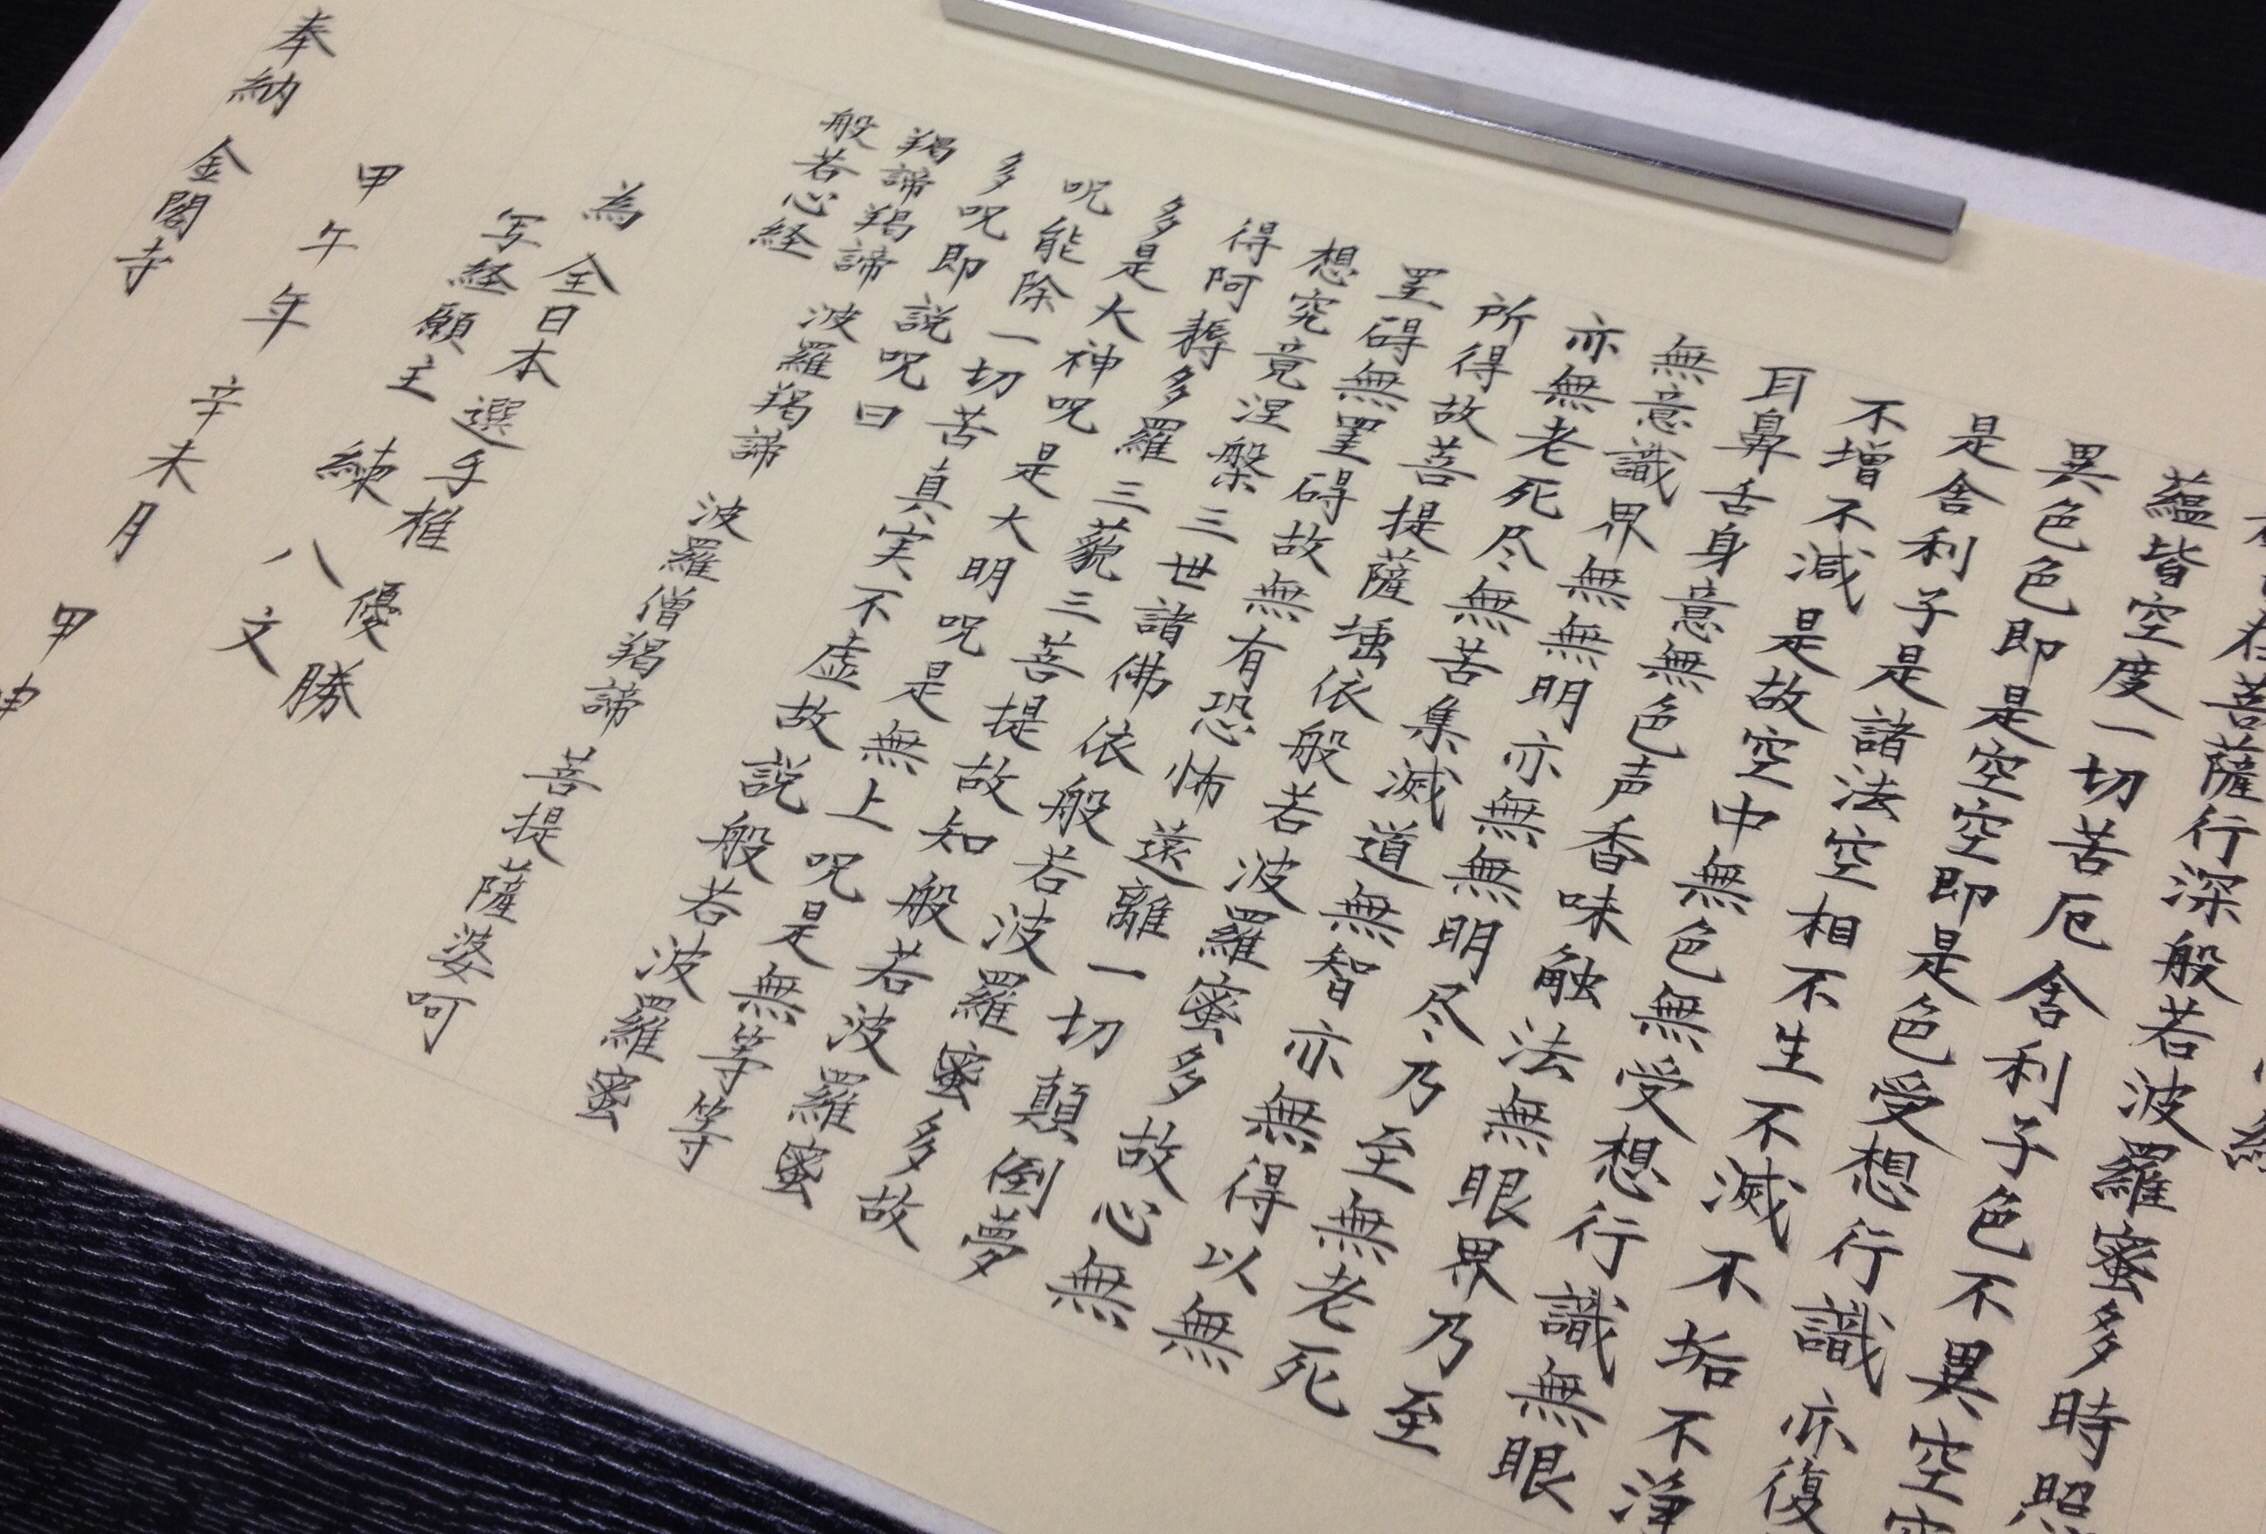 在菩薩行深般若波羅蜜多時照
蘊皆空度一切苦厄舍利子色不異空
異色色即是空空即是色受想行識亦復
是舍利子是諸法空相不生不滅不垢不浄
不増不減是故空中無色無受想行識無眼
耳鼻舌身意無色声香味触法無眼界乃至
無意識界無無明亦無無明尽乃至無老死
亦無老死尽無苦集滅道無智亦無得以無
所得故菩提薩埵依般若波羅蜜多故心無
罣碍無罣碍故無有恐怖遠離一切顛倒夢
想究竟涅槃三世諸佛依般若波羅蜜多故
得阿耨多羅三藐三菩提故知般若波羅蜜
多是大神呪是大明呪是無上呪是無等等
呪能除一切苦真実不虚故説般若波羅蜜
多呪即説呪曰
羯諦羯諦 波羅羯諦 波羅僧羯諦 菩提薩婆呵
般若心経
為全日本選手権優勝
写経願主 練八文
甲午年 辛未月 甲申
奉納 金閣寺